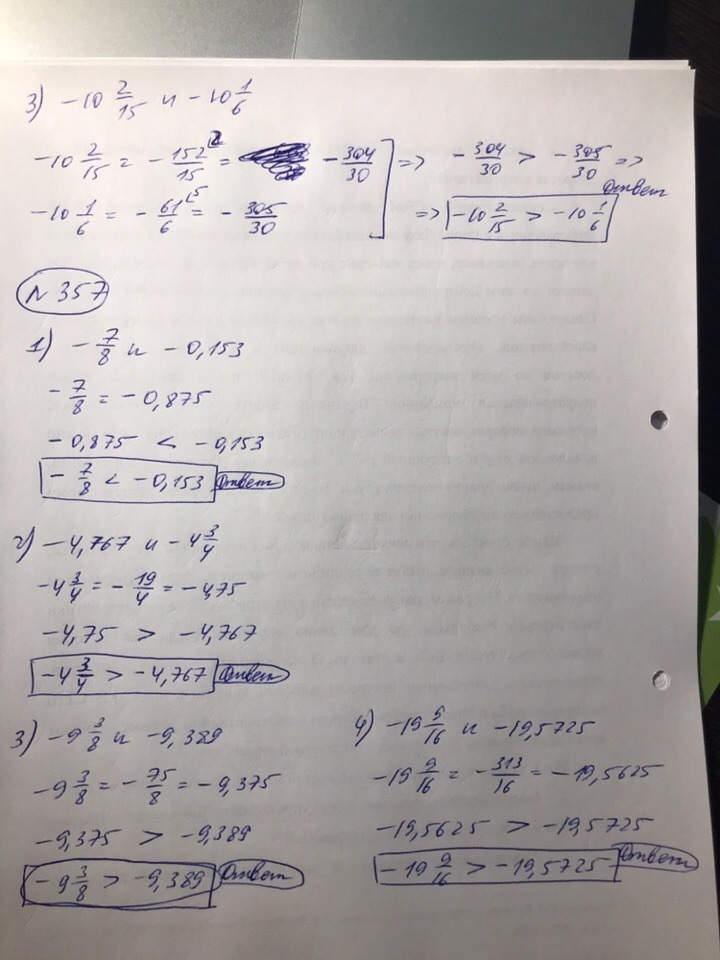 3) -10 2/15 и -10 1/6
-10 2/15 = -152/15 ² = -304/30 ] => -304/30 > -305/30 =>
-10 1/6 = -61/6 ⁵ = -305/30 => -10 2/15 > -10 1/6 Ответ
№ 357
1) -7/8 и -0,153
-7/8 = -0,875
-0,875 < -0,153
-7/8 < -0,153 Ответ
2) -4,767 и -4 3/4
-4 3/4 = -19/4 = -4,75
-4,75 > -4,767
-4 3/4 > -4,767 Ответ
3) -9 3/8 и -9,389
-9 3/8 = -75/8 = -9,375
-9,375 > -9,389
-9 3/8 > -9,389 Ответ
4) -19 9/16 и -19,5725
-19 9/16 = -313/16 = -19,5625
-19,5625 > -19,5725
-19 9/16 > -19,5725 Ответ